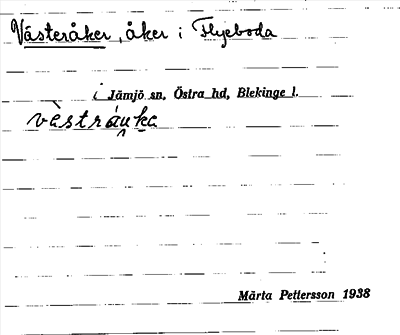 Västeråker, åker i Flyeboda
i Jämjö sn, Östra hd, Blekinge l.
Märta Pettersson 1938